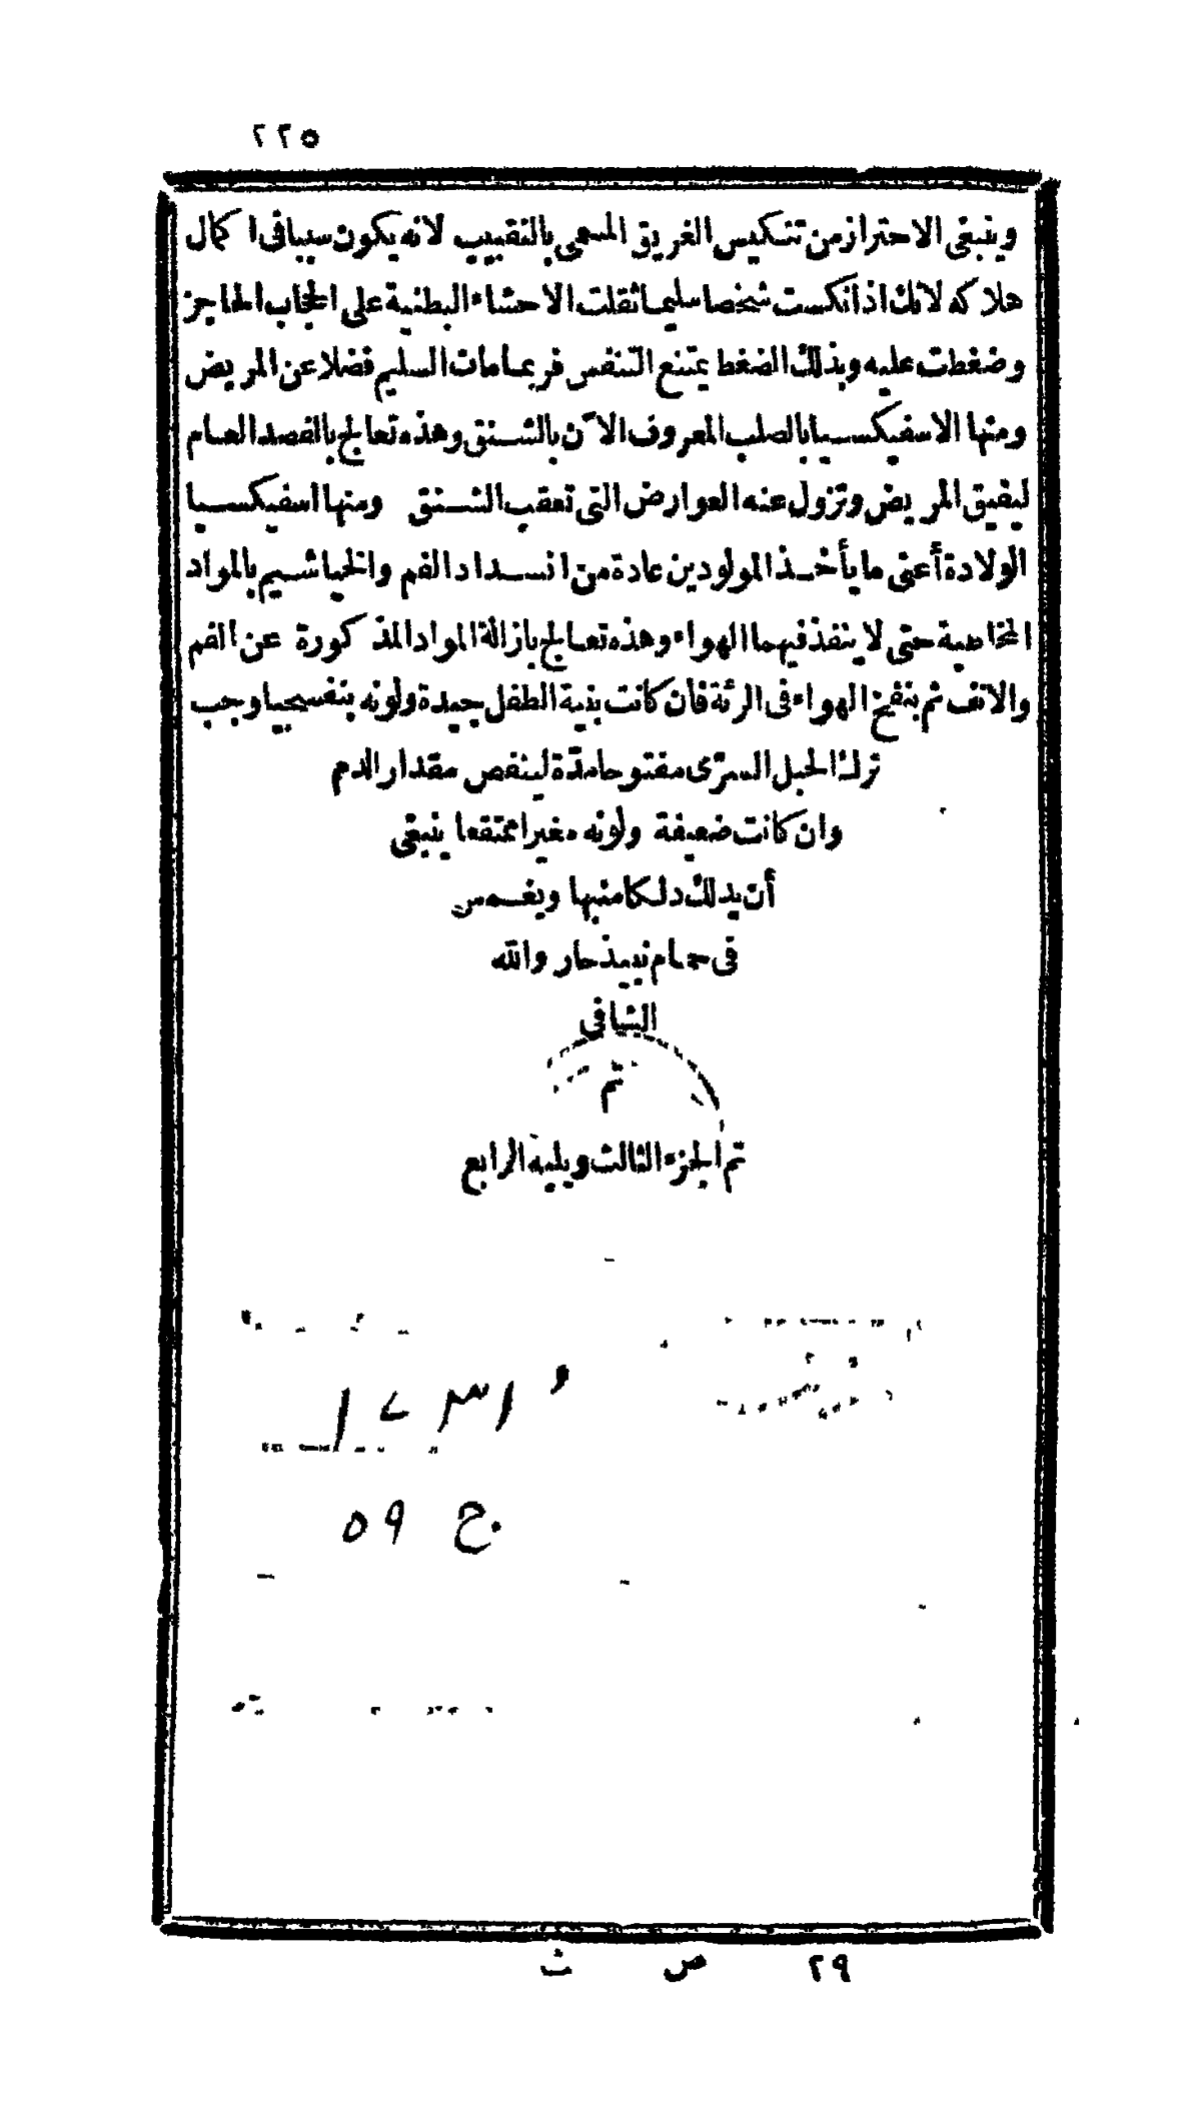 ٢٢٥
وينبغى الاحتراز من تنكيس الغريق المسمى بالتقبيب لانه يكون سببا فى اكمال
هلاكه لانك اذا نكست شخصا سليما ثقلت الاحشاء البطنية على الحجاب الحاجز
وضغطت عليه وبذلك الضغط يمتنع التنفس فربما مات السليم فضلا عن المريض
ومنها الاسفيكسيا بالصلب المعروف الآن بالشنق وهذه تعالج بالفصد العام
ليفيق المريض وتزول عنه العوارض التى تعقب الشنق ومنها اسفيكسيا
الولادة أعنى ما يأخذ المولودين عادة من انسداد الفم والخياشيم بالمواد
المخاطية حتى لا ينفذ فيهما الهواء وهذه تعالج بازالة المواد المذكورة عن الفم
والانف ثم بنفخ الهواء فى الرئة فان كانت بنية الطفل جيدة ولونه بنفسجيا وجب
ترك الحبل السرّى مفتوحا مدّة لينقص مقدار الدم
وان كانت ضعيفة ولونه مغبرا ممتقعا ينبغى
أن يدلك دلكا منبها ويغمس
فى حمام نبيذ حار والله
الشافى
تم
تم الجزء الثالث ويليه الرابع
ج ٥٩
٢٩ ص ث